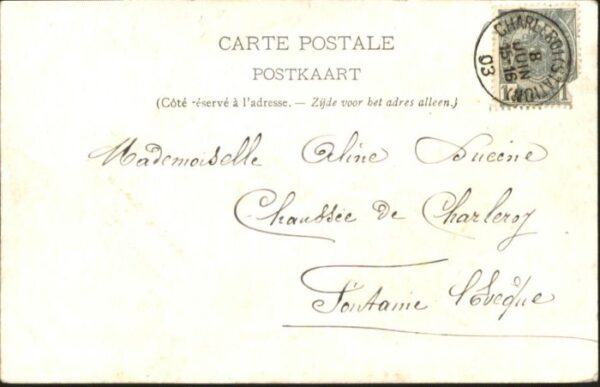 CARTE POSTALE
POSTKAART
(Côté réservé à l'adresse. — Zijde voor het adres alleen.)
CHARLEROI (STATION)
8
JUIN
15-16
03
1
Mademoiselle Aline Lucène
Chaussée de Charleroy
Fontaine l'Evêque